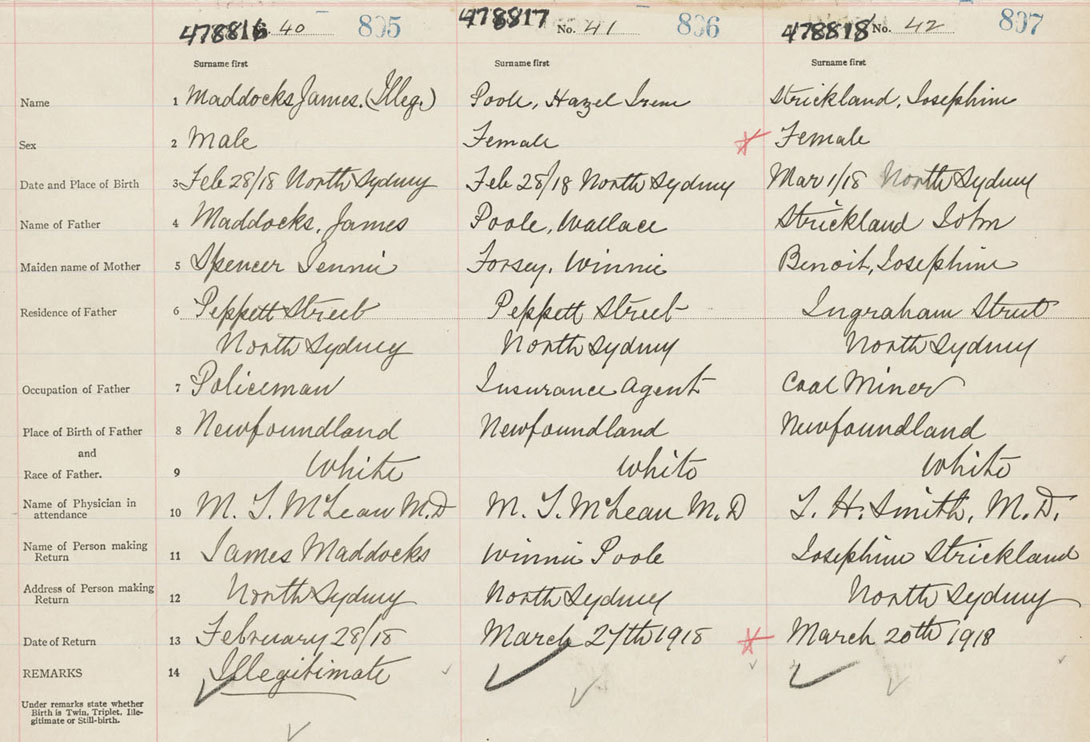 478816 No. 40 805 478817 No. 41 806 478818 No. 42 807
Surname first Surname first Surname first
Name 1 Maddocks James. (Illeg.) Poole, Hazel Irene Strickland, Josephine
Sex 2 Male Female Female
Date and Place of Birth 3 Feb 28/18 North Sydney Feb 28/18 North Sydney Mar 1/18 North Sydney
Name of Father 4 Maddocks, James Poole, Wallace Strickland John
Maiden name of Mother 5 Spencer Jennie Forsey, Winnie Benoit, Josephine
Residence of Father 6 Peppett Street Peppett Street Ingraham Street
North Sydney North Sydney North Sydney
Occupation of Father 7 Policeman Insurance Agent Coal Miner
Place of Birth of Father 8 Newfoundland Newfoundland Newfoundland
and
Race of Father. 9 White White White
Name of Physician in
attendance 10 M. T. McLean M.D M. T. McLean M.D T. H. Smith, M.D.
Name of Person making
Return 11 James Maddocks Winnie Poole Josephine Strickland
Address of Person making
Return 12 North Sydney North Sydney North Sydney
Date of Return 13 February 28/18 March 27th 1918 March 20th 1918
REMARKS 14 Illegitimate
Under remarks state whether
Birth is Twin, Triplet, Ille-
gitimate or Still-birth.